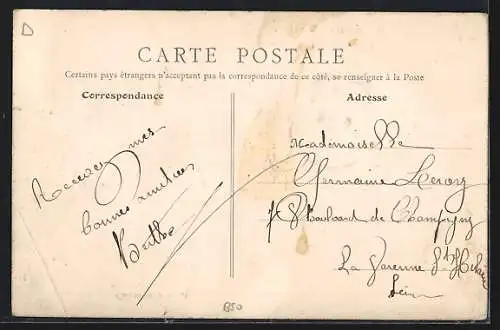 D
CARTE POSTALE
Certains pays étrangers n'acceptent pas la correspondance de ce côté, se renseigner à la Poste
Correspondance
Adresse
Recevez mes
bonnes amitiés
Berthe
Mademoiselle
Germaine Leroy
Boulevard de Champigny
La Varenne St Hilaire
Seine
B50